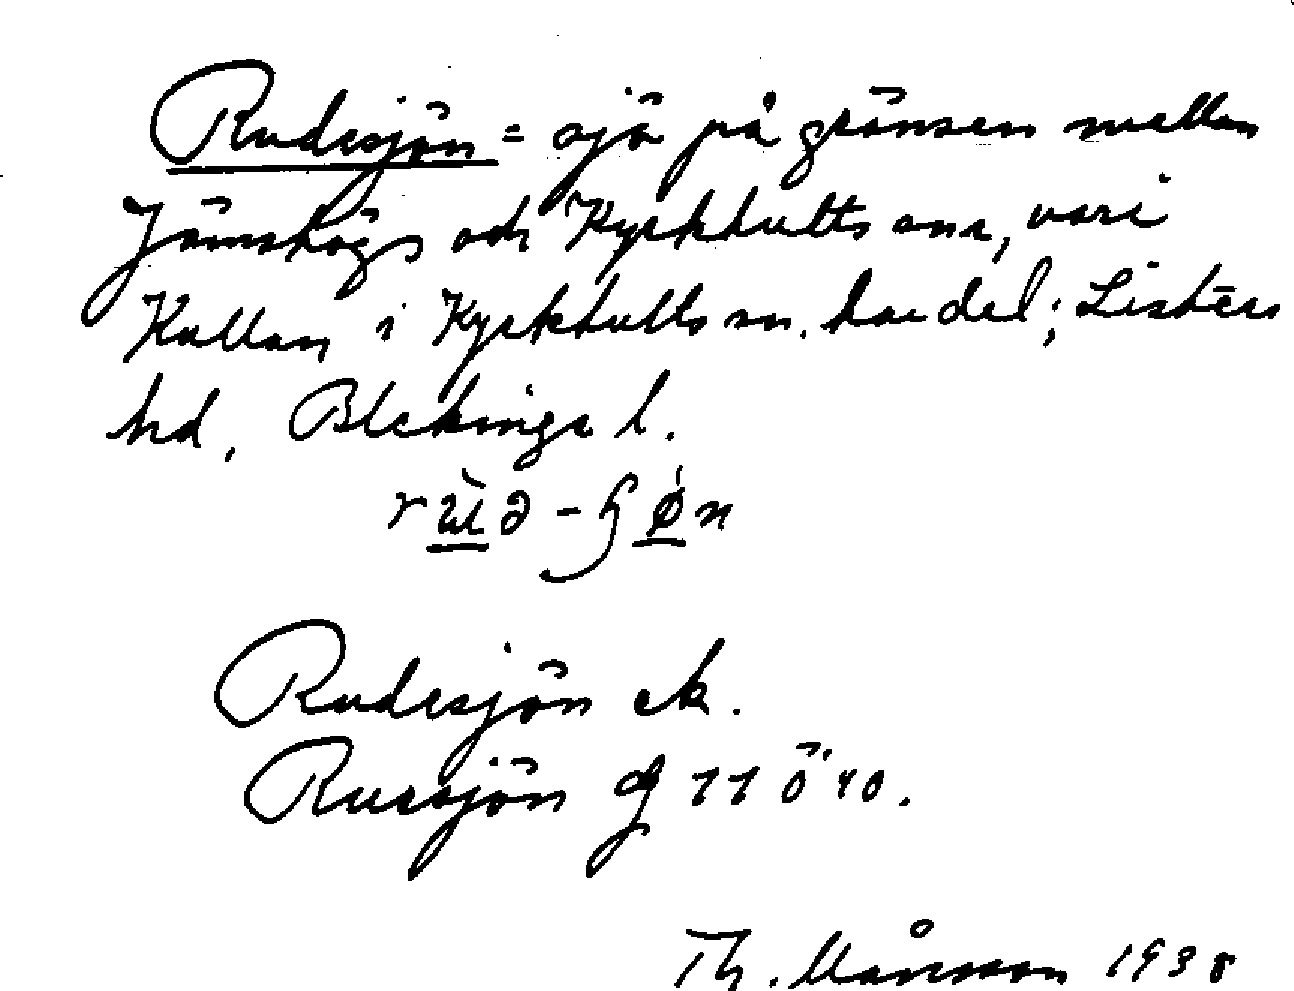 Rudesjön = sjö på gränsen mellan
Jämshögs och Kyrkhults snr, vari
Kullan i Kyrkhults sn. har del; Listers
hd, Blekinge l.
rùə-ʃǿn
Rudesjön ek.
Ruesjön g 11 ö 40.
Th. Månsson 1938